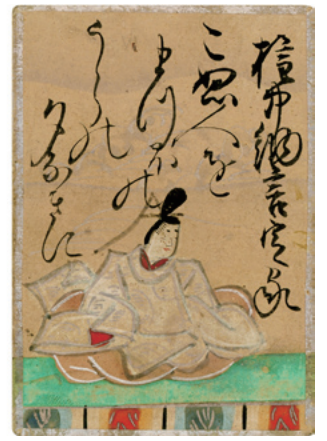 権中納言定家
こぬ人を
まつほの
うらの
夕なきに